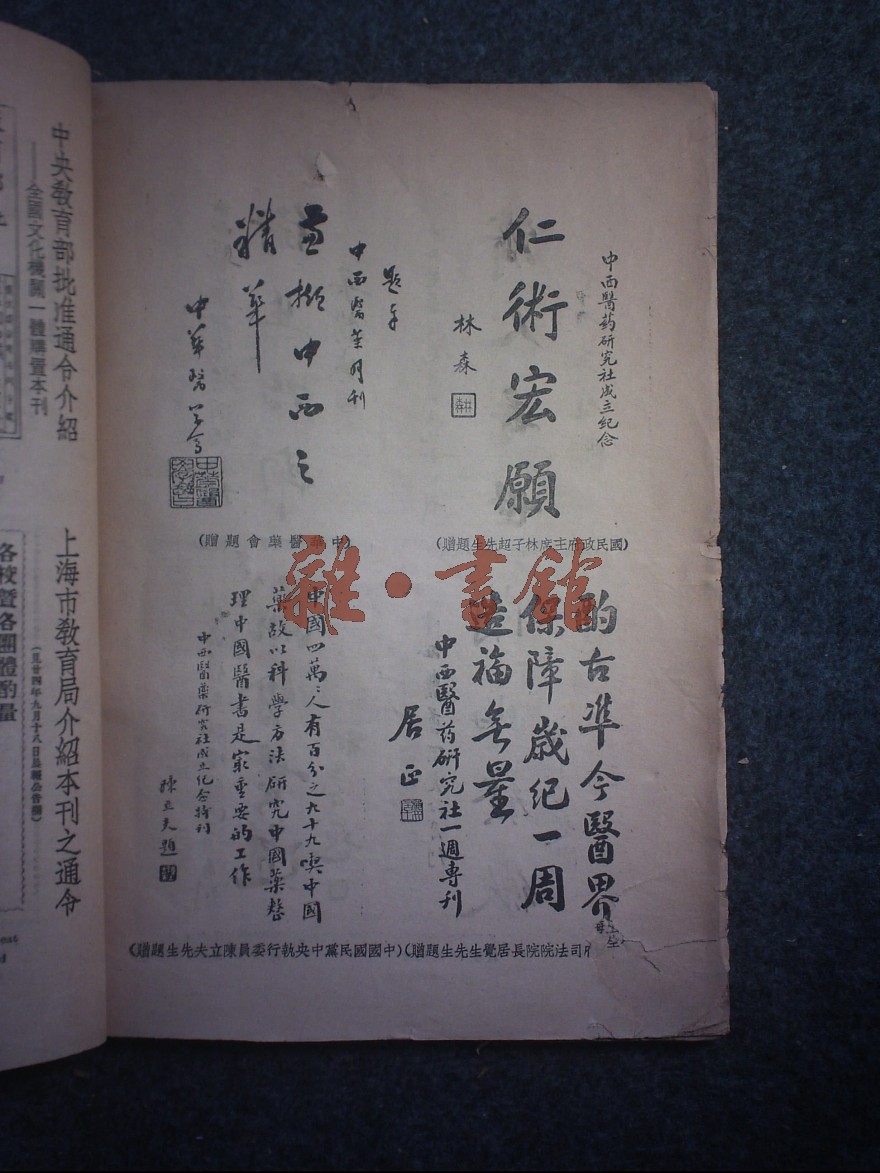 中西醫药研究社成立纪念
仁術宏願
林森
(國民政府主席林子超先生題贈)
題
中西醫葯月刊
中西之
精華
中華醫
(中華醫藥會題贈)
酌古準今醫界
保障歲纪一周
造福無量
中西醫药研究社一週專刊
居正
府司法院院長居覺生先生題贈)
中國四萬之人有百分之九十九喫中國
藥故以科學方法研究中國藥整
理中國醫書是最重要的工作
中西醫藥研究社成立纪念特刊
陳立夫題
(中國國民黨中央執行委員陳立夫先生題贈)
雜·書館
中央教育部批准通令介紹
——全國文化機關一體購置本刊
上海市教育局介紹本刊之通令
各校暨各團體酌量